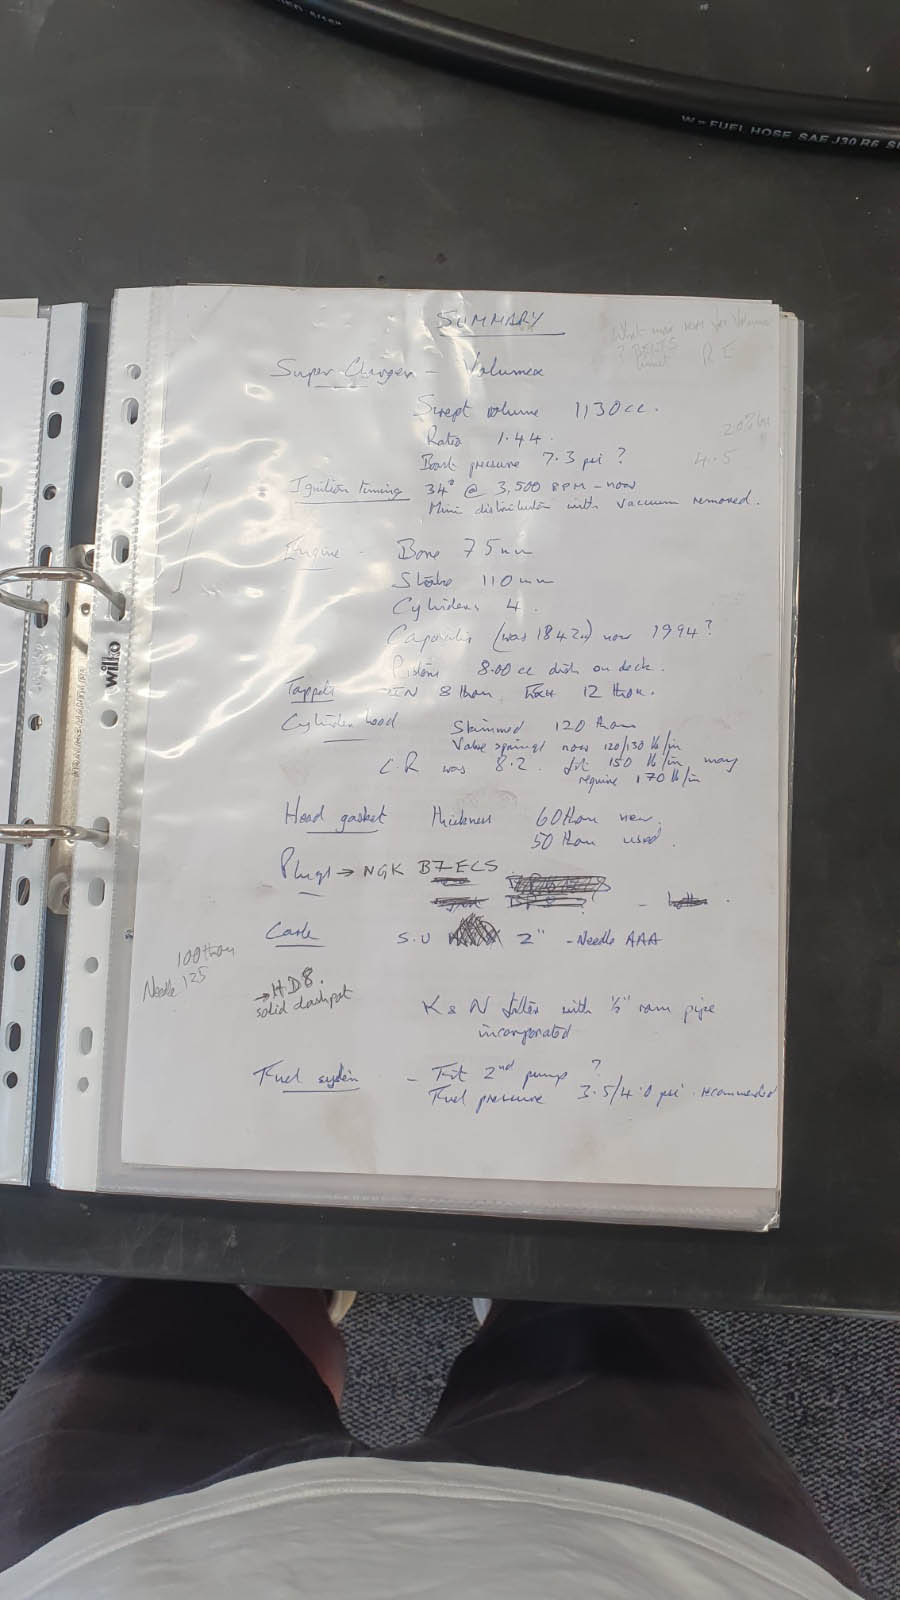 W - FUEL HOSE SAE J30 R6
SUMMARY
What max revs for Volumex
? BELTS
limit
Super Charger - Volumex
Swept volume 1130 cc.
Ratio 1.44.
Boost pressure 7.3 psi ?
4.5
Ignition timing 34° @ 3,500 RPM - now
Mini distributor with vacuum removed.
Engine - Bore 75 mm
Stroke 110 mm
Cylinders 4.
Capacity (was 1842) now 1994?
Pistons 8.00 cc dish on deck.
Tappets IN 8 thou. Exh 12 thou.
Cylinder head Skimmed 120 thou
Valve springs now 120/130 lb/in
C.R was 8.2. fit 150 lb/in may
require 170 lb/in
Head gasket thickness 60 thou new.
50 thou used.
Plugs → NGK B7ECS
Carb S.U 2" - Needle AAA
100 thou
Needle 125
→ HD8.
solid dashpot
K & N filter with ½" ram pipe
incorporated
Fuel system - Fit 2nd pump ?
Fuel pressure 3.5/4.0 psi. recommended
wilko